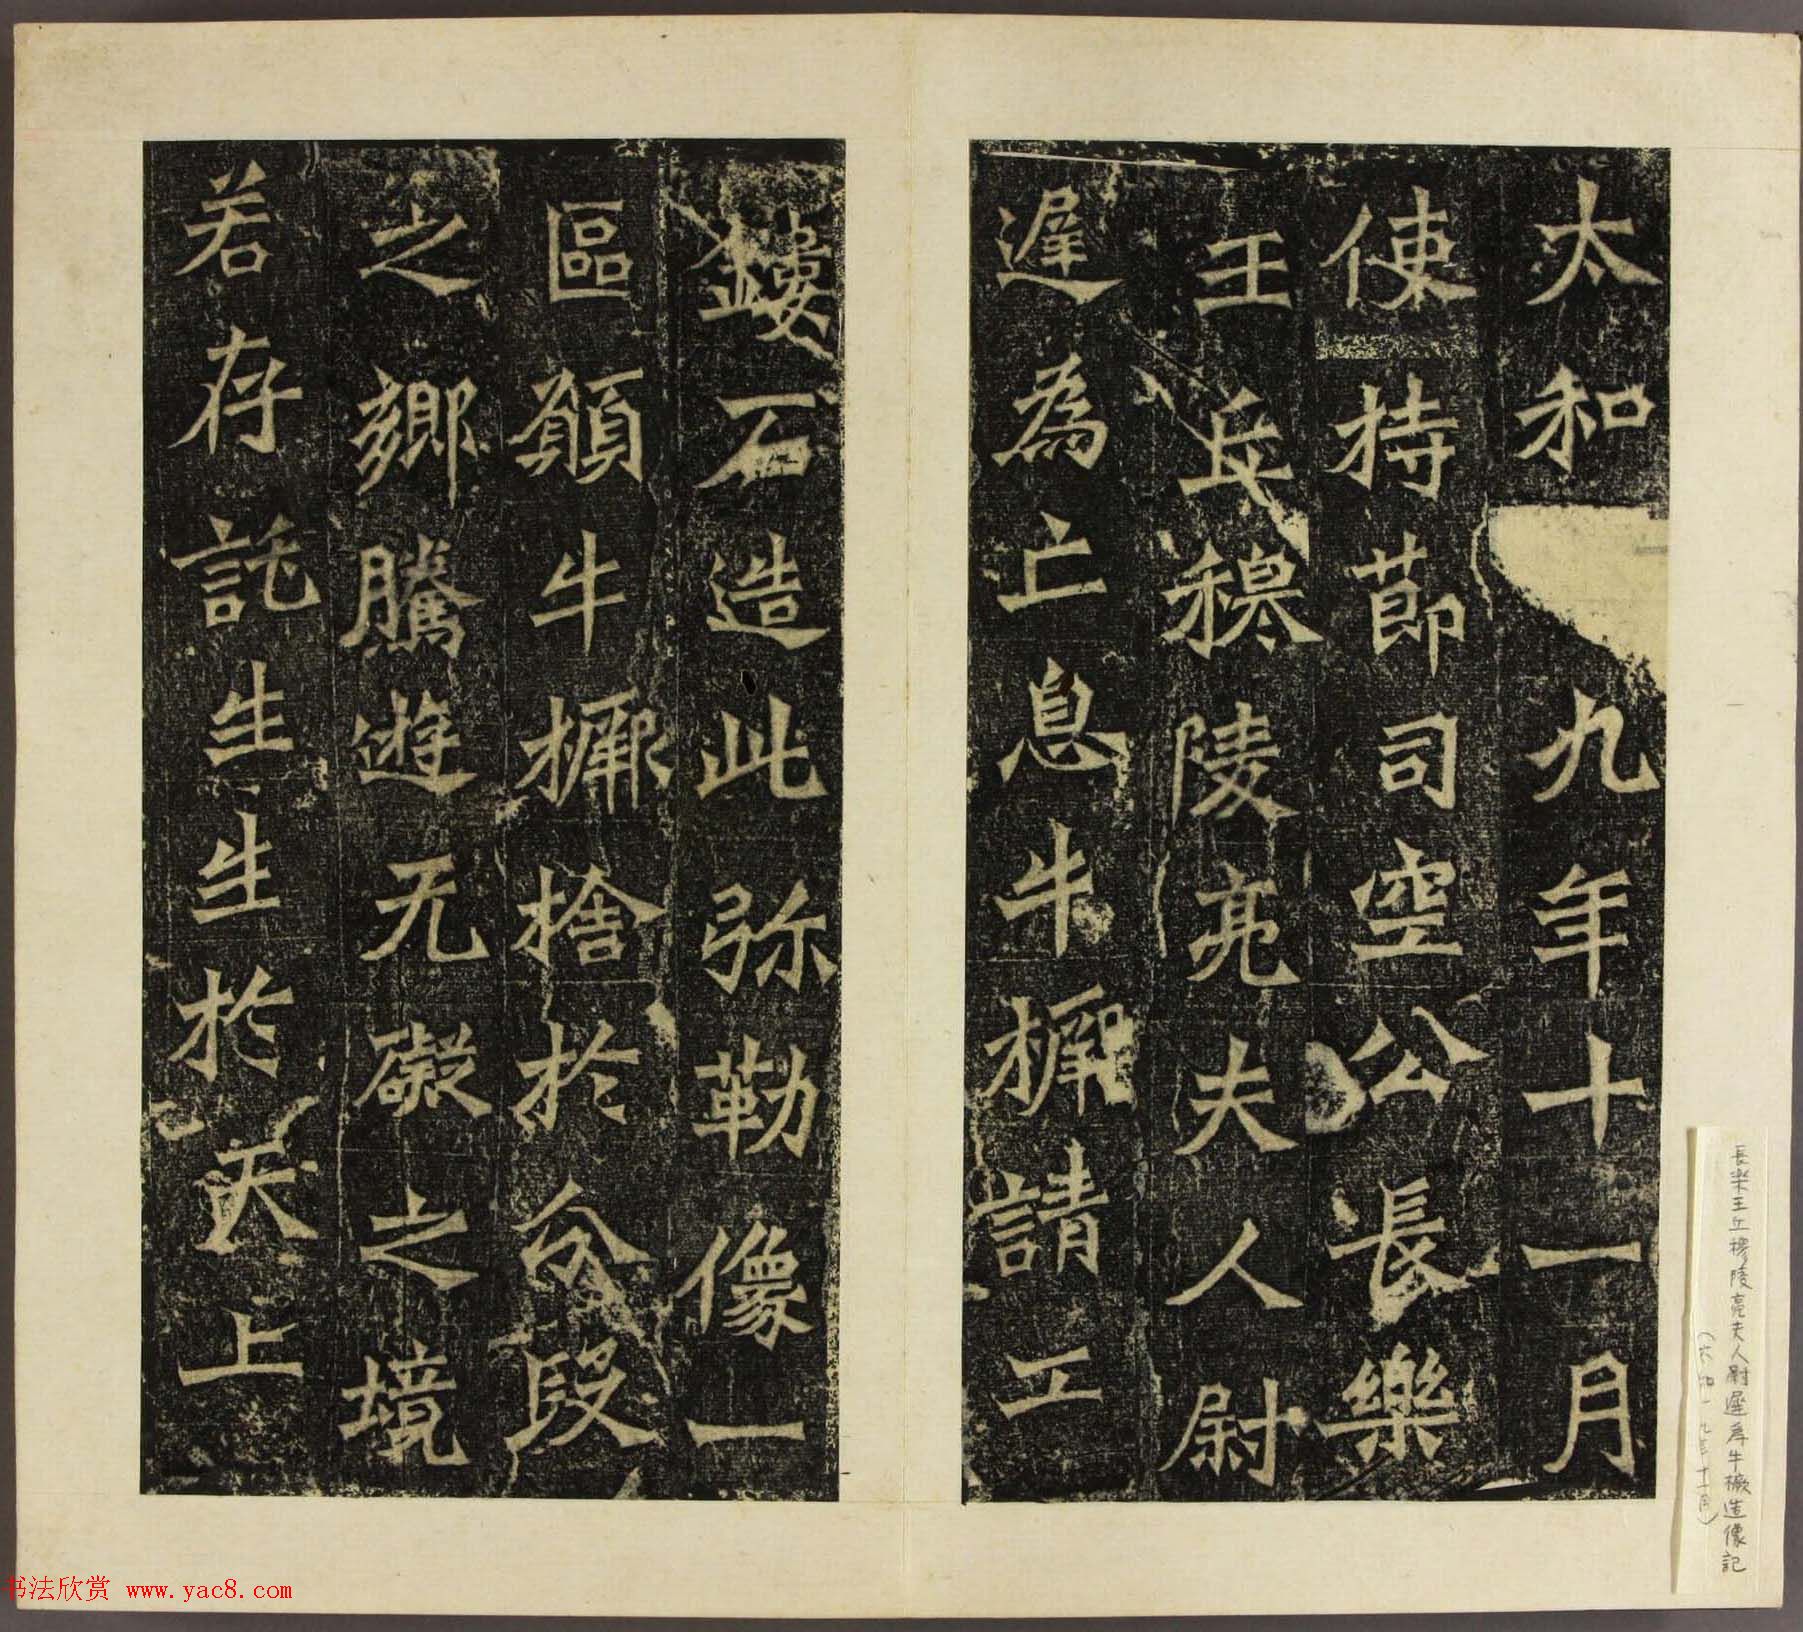 太和九年十一月
使持節司空公長樂
王丘穆陵亮夫人尉
遲為亡息牛橛請工
鏤石造此弥勒像一
區願牛橛捨於分段
之鄉騰遊无礙之境
若存託生生於天上
長楽王丘穆陵亮夫人尉遲為牛橛造像記
(太和一九年十一月)
书法欣赏 www.yac8.com